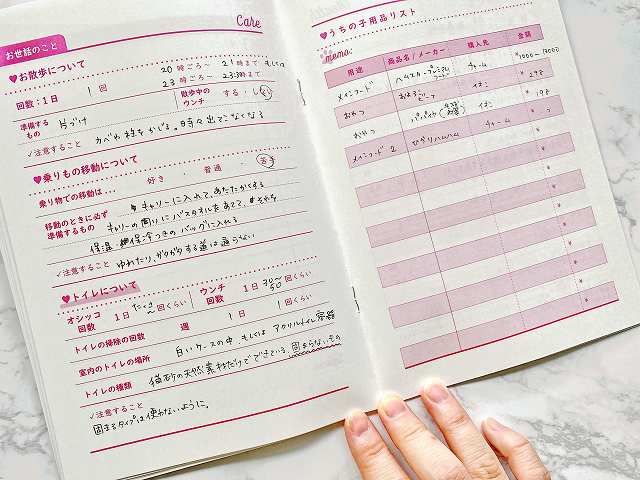 Care
お世話のこと
♥お散歩について
回数:1日 1回 20時ごろ〜21時まで もしくは
23時ごろ〜23:30まで
準備するもの 片づけ
散歩中のウンチ する・しない
✓注意すること カベや柱をかじる。時々出てこなくなる
♥乗りもの移動について
乗り物での移動は... 好き・普通・苦手
移動のときに必ず準備するもの キャリーに入れて、あたたかくする
キャリーの周りにバスタオルをあてて、
保温・保冷つきのバッグに入れる
✓注意すること ゆれたり、ガタガタする道は通らない
♥トイレについて
オシッコ回数 1日 たくさん 回くらい ウンチ回数 1日 30〜50 回くらい
トイレの掃除の回数 週 1日 1回くらい
室内のトイレの場所 白いケースの中、もしくはアクリルトイレ容器
トイレの種類 猫砂の天然素材だけでできている、固まらないもの
✓注意すること
固まるタイプは使わないように。
♥うちの子用品リスト
memo:
用途 商品名/メーカー 購入先 金額
メインフード ハムスタープレミアムフード チャーム ¥1000〜
おやつ イオン ¥298
おやつ パパイヤ イオン ¥198
メインフード2 ひかりハムハム チャーム ¥
¥
¥
¥
¥
¥
¥